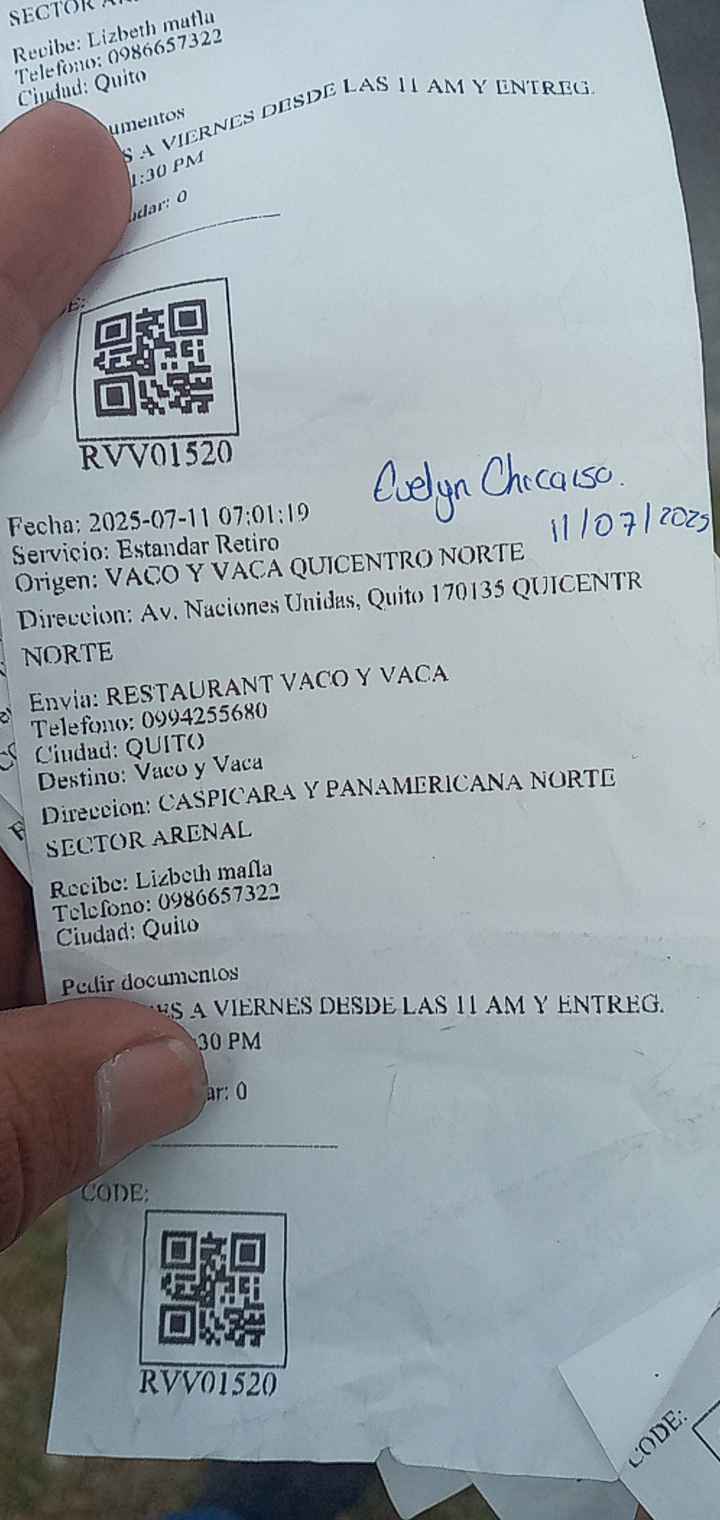 SECTOR
Recibe: Lizbeth mafla
Telefono: 0986657322
Ciudad: Quito
A VIERNES DESDE LAS 11 AM Y ENTREG.
1:30 PM
0
RVV01520
Evelyn
11/07/2025
Fecha: 2025-07-11 07:01:19
Servicio: Estandar Retiro
Origen: VACO Y VACA QUICENTRO NORTE
Direccion: Av. Naciones Unidas, Quito 170135 QUICENTR
NORTE
Envia: RESTAURANT VACO Y VACA
Telefono: 0994255680
Ciudad: QUITO
Destino: Vaco y Vaca
Direccion: CASPICARA Y PANAMERICANA NORTE
SECTOR ARENAL
Recibe: Lizbeth mafla
Telefono: 0986657322
Ciudad: Quito
Pedir documentos
A VIERNES DESDE LAS 11 AM Y ENTREG.
30 PM
ar: 0
CODE:
RVV01520
CODE: